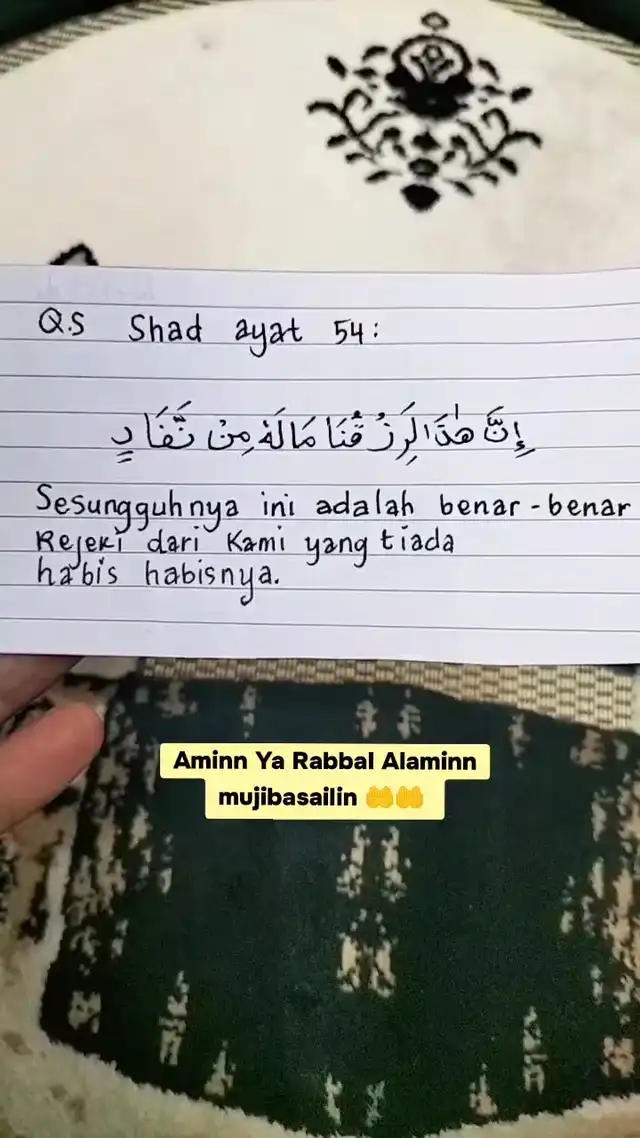 Q.S Shad ayat 54:
إِنَّ هٰذَا لَرِزْقُنَا مَا لَهٗ مِنْ نَّفَادٍ
Sesungguhnya ini adalah benar-benar
Rejeki dari Kami yang tiada
habis habisnya.
Aminn Ya Rabbal Alaminn
mujibasailin 🤲🤲